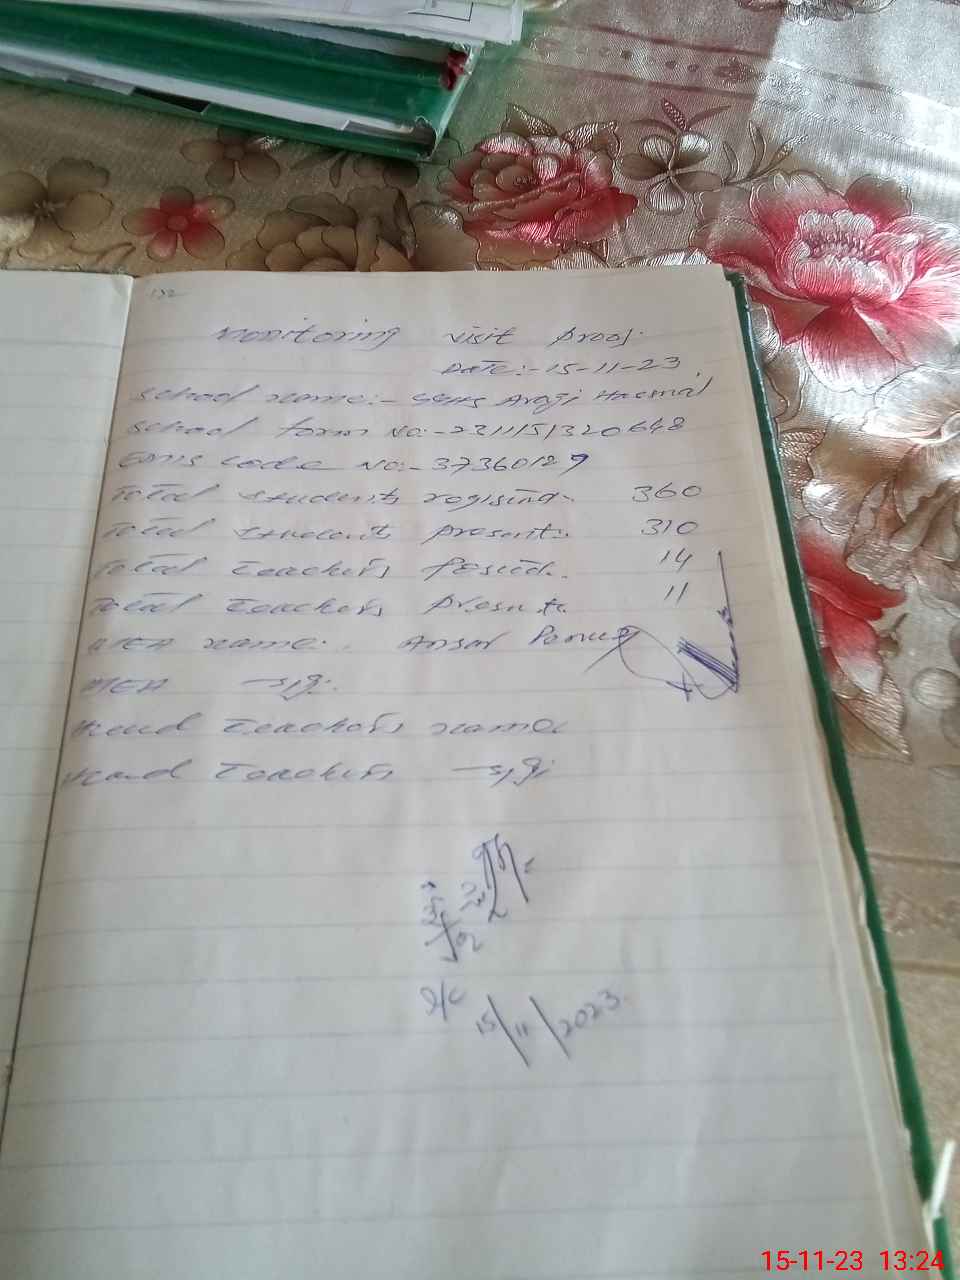 132
Monitoring visit proof.
Date:-15-11-23
School name:- GGHS Aragi
School form No:-2311151320648
EMIS Code No:-37360129
Total students
360
Total students present:
310
Total Teachers
14
Total Teachers Present.
11
MEA name. Ansar
MEA sig:
Head Teachers name
Head Teachers sig:
I/C
15/11/2023
15-11-23 13:24